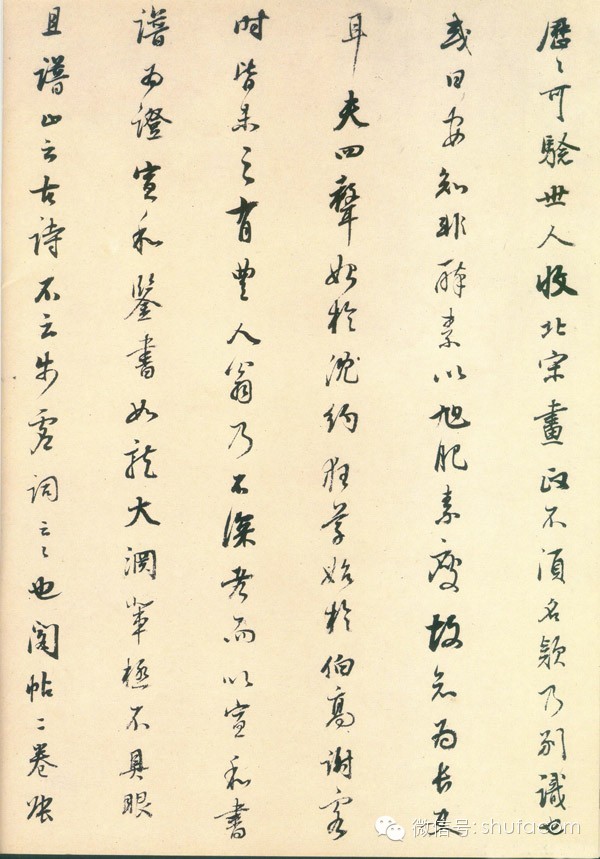 歷〻可驗世人收北宋畫政不須名款乃別識也
或曰安知非醉素以旭肥素瘦故知為長史
耳夫四聲始於沈約狂草始於伯高謝客
時皆未之有豐人翁乃不深考而以宣和書
譜為證宣和鑒書如龍大淵輩極不具眼
且譜止云古詩不云步虛詞云〻也閣帖二卷張
微信号: shufacom